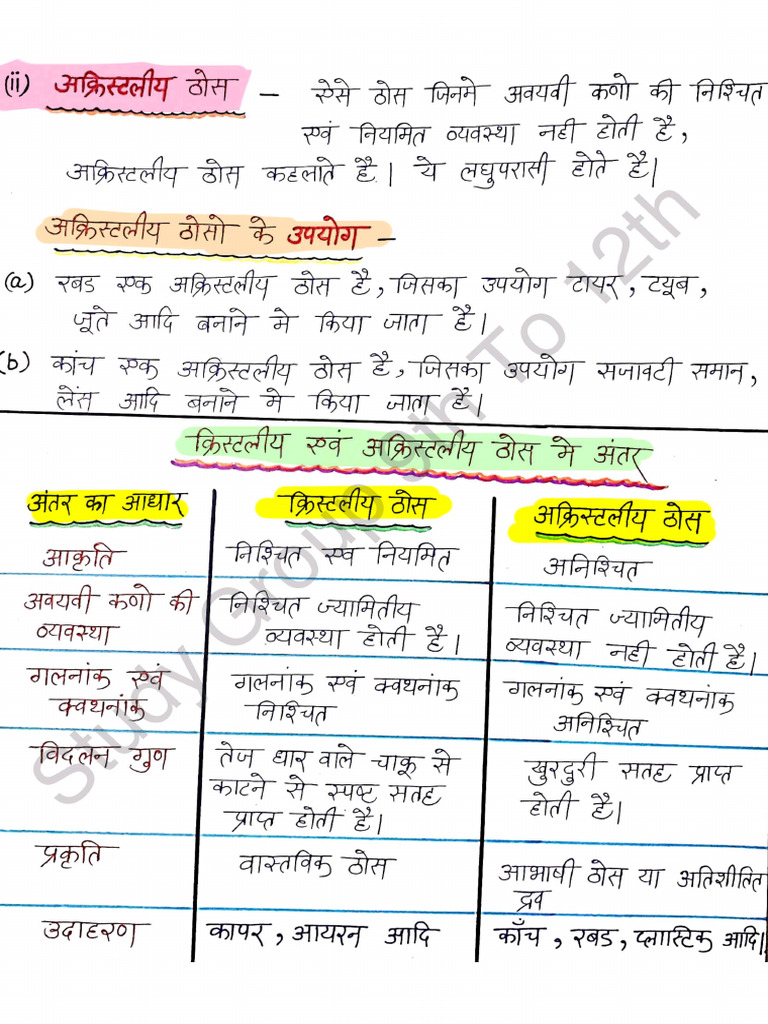 (ii) अक्रिस्टलीय ठोस — ऐसे ठोस जिनमे अवयवी कणो की निश्चित
एवं नियमित व्यवस्था नही होती है,
अक्रिस्टलीय ठोस कहलाते है। ये लघुपरासी होते है।
अक्रिस्टलीय ठोसो के उपयोग —
(a) रबड एक अक्रिस्टलीय ठोस है, जिसका उपयोग टायर, टयूब,
जूते आदि बनाने मे किया जाता है।
(b) कांच एक अक्रिस्टलीय ठोस है, जिसका उपयोग सजावटी समान,
लेंस आदि बनाने मे किया जाता है।
क्रिस्टलीय एवं अक्रिस्टलीय ठोस मे अंतर
अंतर का आधार क्रिस्टलीय ठोस अक्रिस्टलीय ठोस
आकृति निश्चित एव नियमित अनिश्चित
अवयवी कणो की
व्यवस्था
निश्चित ज्यामितीय
व्यवस्था होती है।
निश्चित ज्यामितीय
व्यवस्था नही होती है।
गलनांक एवं
क्वथनांक
गलनांक एवं क्वथनांक
निश्चित
गलनांक एवं क्वथनांक
अनिश्चित
विदलन गुण
तेज धार वाले चाकू से
काटने से स्पष्ट सतह
प्राप्त होती है।
खुरदुरी सतह प्राप्त
होती है।
प्रकृति
वास्तविक ठोस
आभाषी ठोस या अतिशीतित
द्रव
उदाहरण कापर, आयरन आदि काँच, रबड, प्लास्टिक आदि।
Study Group 9th To 12th